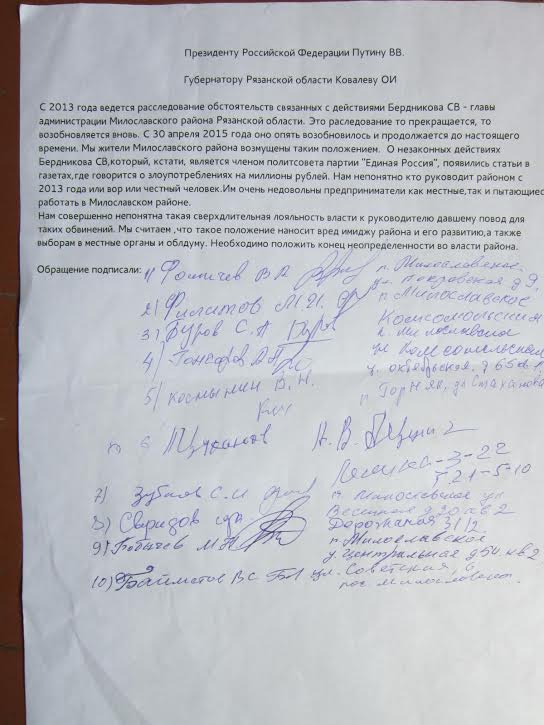 Президенту Российской Федерации Путину ВВ.
Губернатору Рязанской области Ковалеву ОИ
С 2013 года ведется расследование обстоятельств связанных с действиями Бердникова СВ - главы
администрации Милославского района Рязанской области. Это раследование то прекращается, то
возобновляется вновь. С 30 апреля 2015 года оно опять возобновилось и продолжается до настоящего
времени. Мы жители Милославского района возмущены таким положением. О незаконных действиях
Бердникова СВ,который, кстати, является членом политсовета партии "Единая Россия", появились статьи в
газетах,где говорится о злоупотреблениях на миллионы рублей. Нам непонятно кто руководит районом с
2013 года или вор или честный человек.Им очень недовольны предприниматели как местные,так и пытающиеся
работать в Милославском районе.
Нам совершенно непонятна такая сверхдлительная лояльность власти к руководителю давшему повод для
таких обвинений. Мы считаем ,что такое положение наносит вред имиджу района и его развитию,а также
выборам в местные органы и облдуму. Необходимо положить конец неопределенности во власти района.
Обращение подписали: 1) Фомичев В А п. Милославское
ул. Покровская д 9,
2) Филатов М.И. п Милославское
Комсомольская
3) Буров С.А п. Милославское
4) ул Комсомольская
у. октябрьская, д 65 кв 1
5) Космынин В. Н. п Горняк, ул Стаханова
6 Цуканов А. В.
Ленина-3-22
т. 21-5-10
7) Зубков С.И п. Милославское ул
Весенняя д 20 кв 2
8) Свиридов Дорожная 31/2
9) Бобычев М А п. Милославское
у Центральная д 54 кв 2
10) Баиметов ВС ул. Советская, 6
пос Милославское